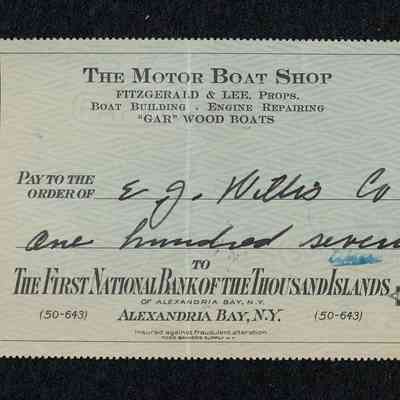 THE MOTOR BOAT SHOP
FITZGERALD & LEE, PROPS.
BOAT BUILDING - ENGINE REPAIRING
"GAR" WOOD BOATS
PAY TO THE
ORDER OF E. J. Willis Co
One hundred seven
TO
THE FIRST NATIONAL BANK OF THE THOUSAND ISLANDS
OF ALEXANDRIA BAY, N.Y.
(50-643) ALEXANDRIA BAY, N.Y. (50-643)
Insured against fraudulent alteration
TODD BANKERS SUPPLY N.Y.